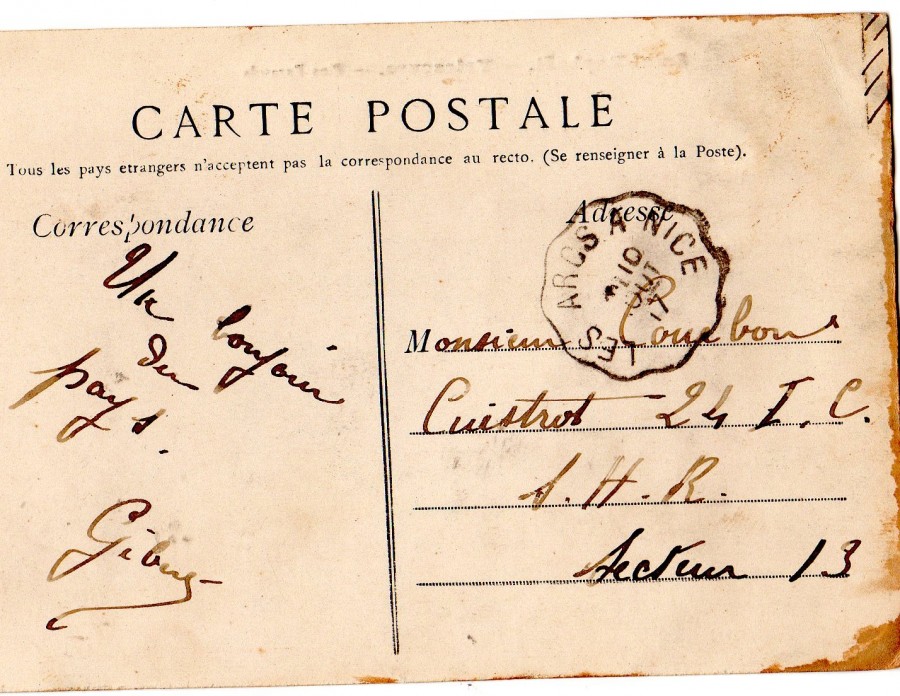 CARTE POSTALE
Tous les pays etrangers n'acceptent pas la correspondance au recto. (Se renseigner à la Poste).
Correspondance
Un bonjour
du
pays.
Adresse
LES ARCS A NICE
10
Monsieur Courbon
Cuistrot 24 I. C.
S. H. R.
Secteur 13